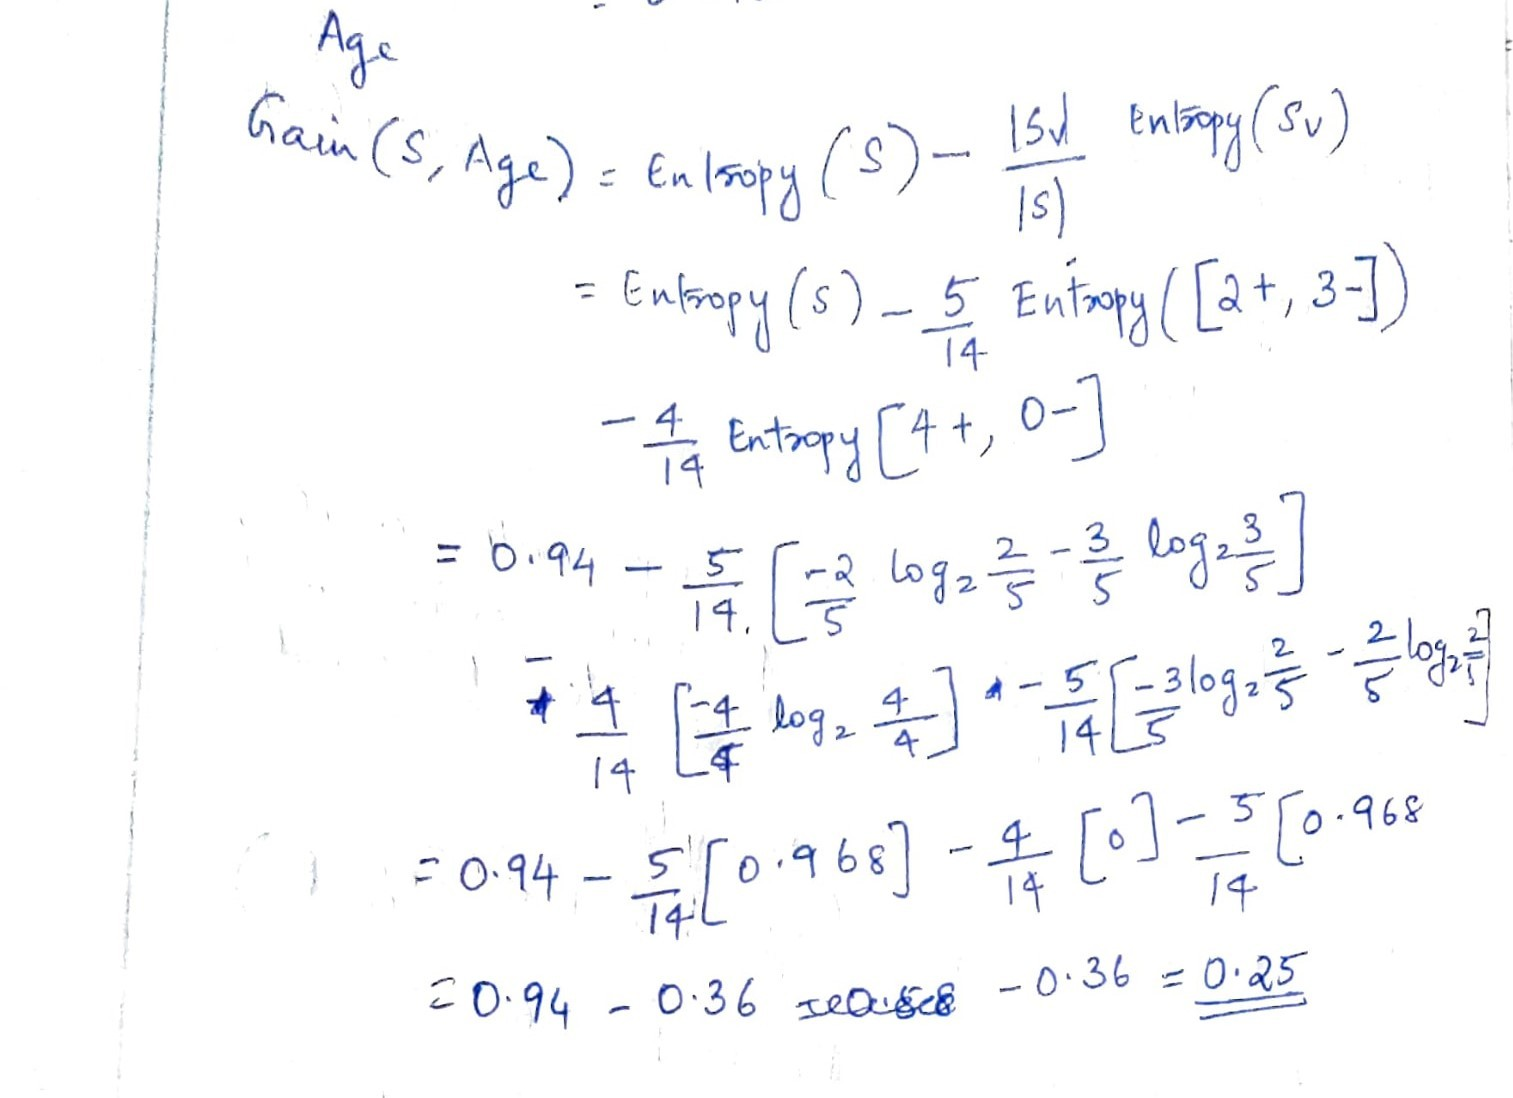 Age
Gain (S, Age) = Entropy (S) - |Sv| / |S| Entropy (Sv)
= Entropy (S) - 5/14 Entropy ([2+, 3-])
- 4/14 Entropy [4+, 0-]
= 0.94 - 5/14 [-2/5 log2 2/5 - 3/5 log2 3/5]
- 4/14 [-4/4 log2 4/4] - 5/14 [-3/5 log2 2/5 - 2/5 log2 2/5]
= 0.94 - 5/14 [0.968] - 4/14 [0] - 5/14 [0.968
= 0.94 - 0.36 - 0.36 = 0.25